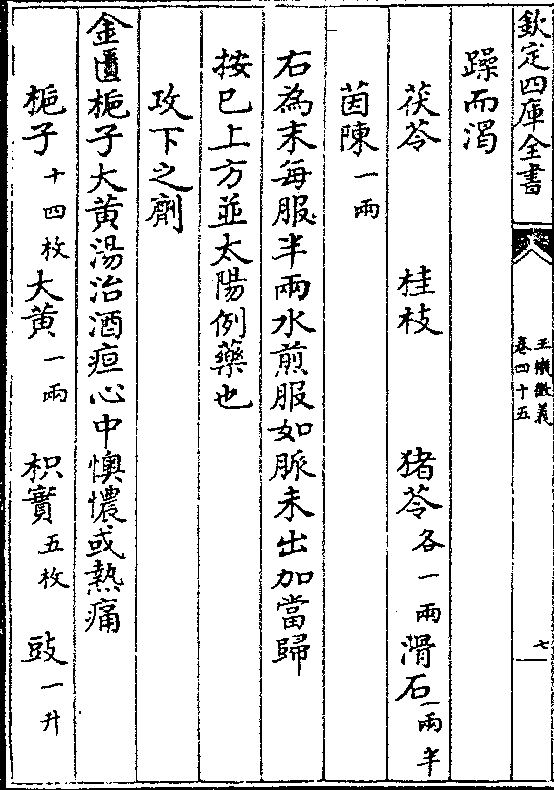 欽定四庫全書
玉機微義
卷四十五
七
躁而渴
茯苓 桂枝 猪苓各一兩 滑石一兩半
茵陳一兩
右為末每服半兩水煎服如脈未出加當歸
按已上方並太陽例藥也
攻下之劑
金匱梔子大黃湯治酒疸心中懊憹或熱痛
梔子十四枚 大黃一兩 枳實五枚 豉一升